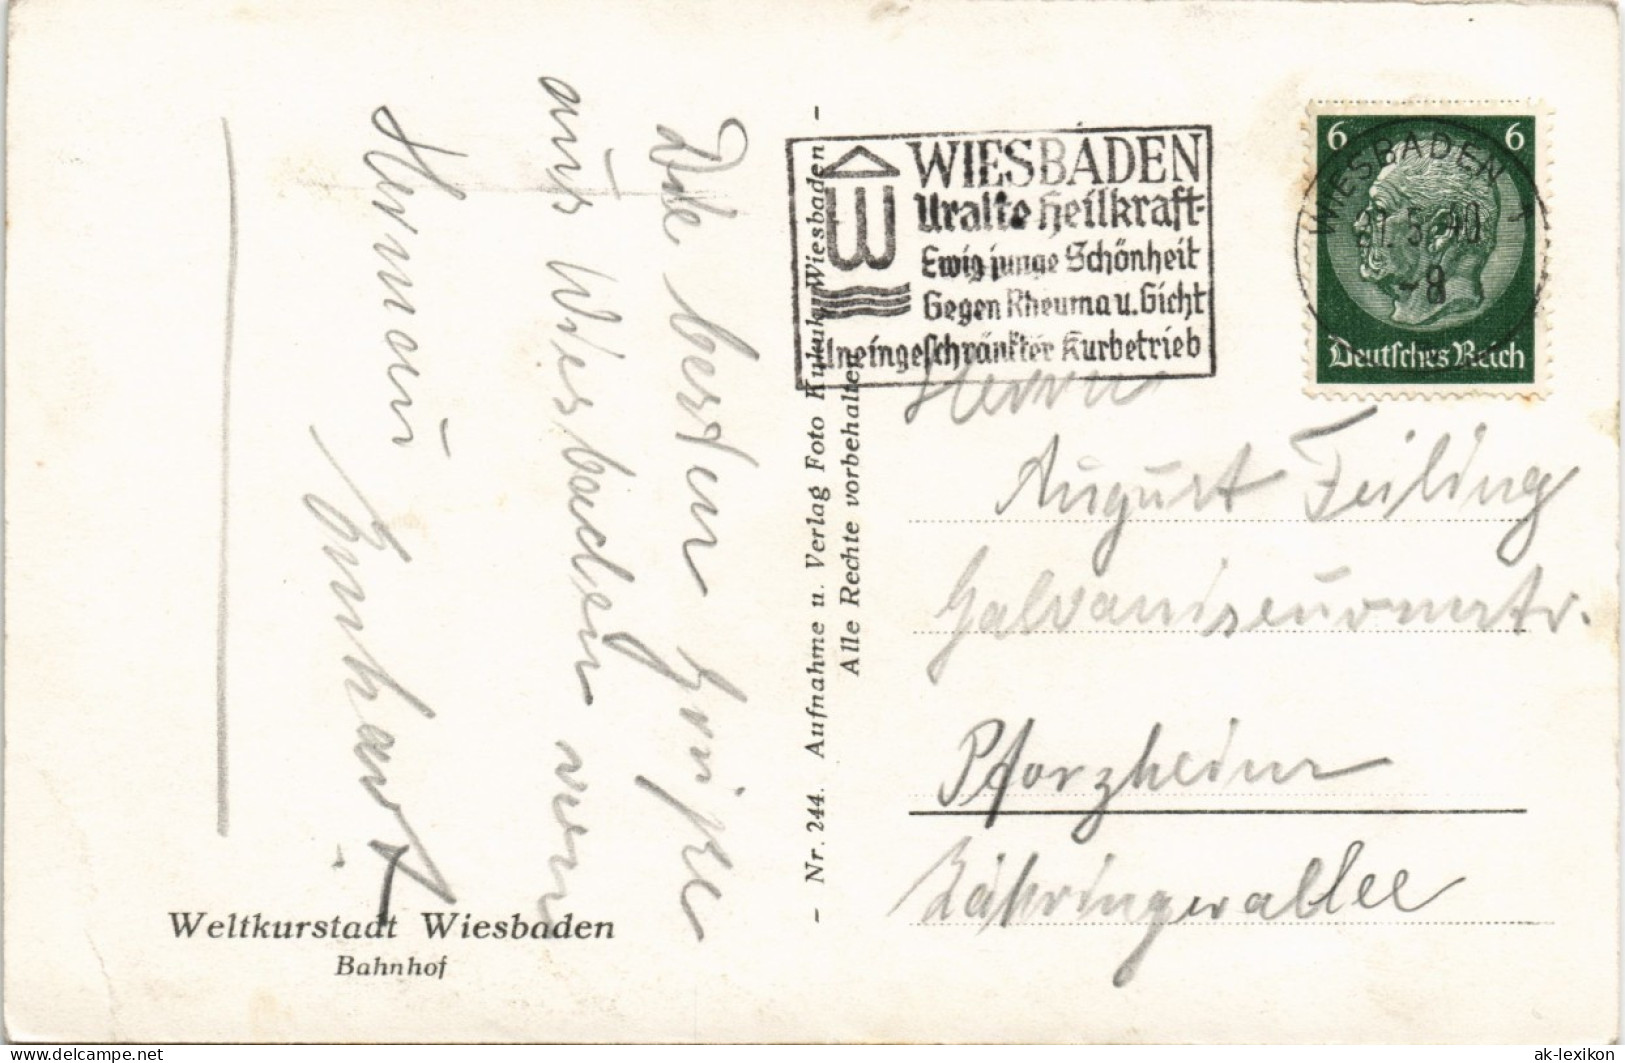 Die besten Grüße
aus Wiesbaden von
Hermann
Weltkurstadt Wiesbaden
Bahnhof
- Nr. 244. Aufnahme u. Verlag Foto Kukuk, Wiesbaden -
Alle Rechte vorbehalten
WIESBADEN
Uralte Heilkraft-
Ewig junge Schönheit
Gegen Rheuma u. Gicht
Uneingeschränkter Kurbetrieb
6 6
WIESBADEN 1
5. 40
-8
Deutsches Reich
Herrn
August Feiling
Galvaniseurmstr.
Pforzheim
Zähringerallee
delcampe.net
ak-lexikon